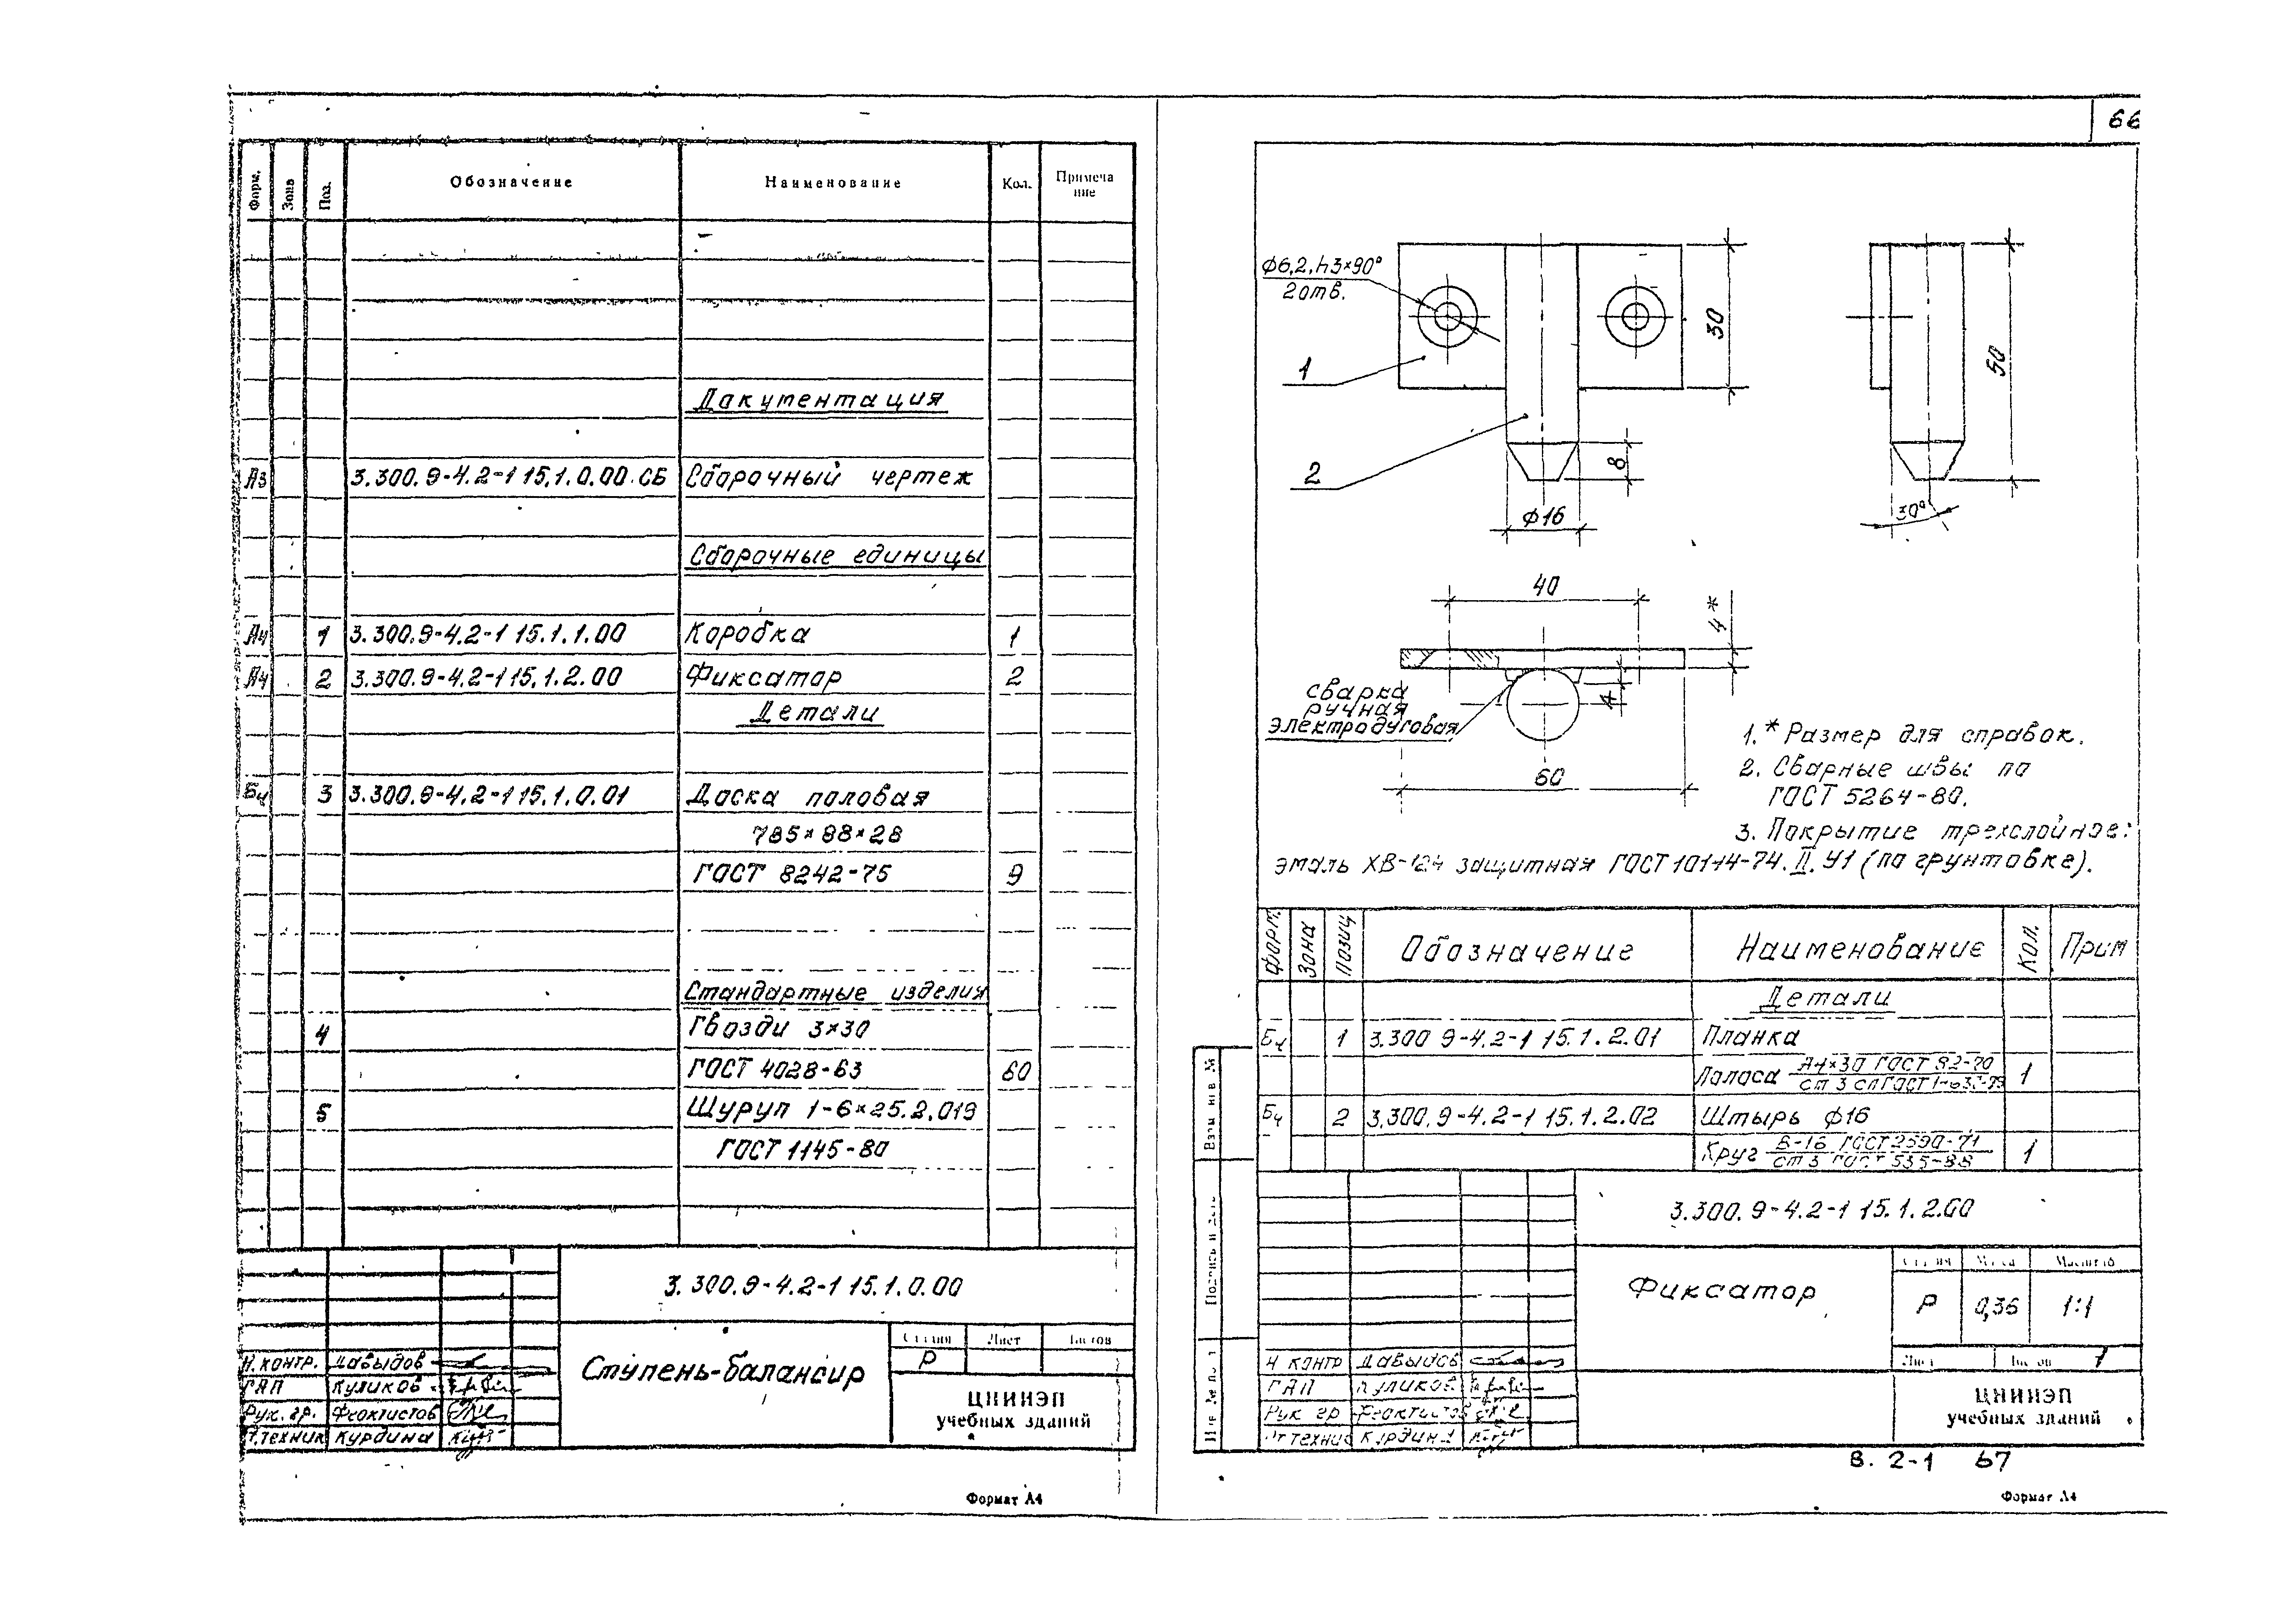 66
Форм.
Зона
Поз.
Обозначение
Наименование
Кол.
Примеча
ние
Документация
А3 3.300.9-4.2-1 15.1.0.00.СБ Сборочный чертеж
Сборочные единицы
А4 1 3.300.9-4.2-1 15.1.1.00 Коробка 1
А4 2 3.300.9-4.2-1 15.1.2.00 Фиксатор 2
Детали
Бч 3 3.300.9-4.2-1 15.1.0.01 Доска половая
785×88×28
ГОСТ 8242-75 9
Стандартные изделия
4 Гвозди 3×30
ГОСТ 4028-63 60
5 Шуруп 1-6×25.2.019
ГОСТ 1145-80
3.300.9-4.2-1 15.1.0.00
Н.контр. Давыдов
ГАП Куликов
Рук. гр. Феоктистов
Ст.техник Курдина
Ступень-балансир
Стадия Лист Листов
Р
ЦНИИЭП
учебных зданий
Формат А4
ф6,2, h3×90°
2 отв.
1
2
30
8
ф16
50
30°
40
4*
4
60
сварка
ручная
электродуговая
1.* Размер для справок.
2. Сварные швы по
ГОСТ 5264-80.
3. Покрытие трехслойное:
эмаль ХВ-124 защитная ГОСТ 10144-74.II.У1 (по грунтовке).
Форм. Зона Позиц Обозначение Наименование Кол. Прим
Детали
Бч 1 3.300 9-4.2-1 15.1.2.01 Планка
Полоса А4×30 ГОСТ 82-70 1
Бч 2 3.300.9-4.2-1 15.1.2.02 Штырь ф16
Круг В-16 ГОСТ 2590-71
ст 3 ГОСТ 535-88 1
Взам. инв. №
Подпись и дата
Инв. № подл
3.300.9-4.2-1 15.1.2.00
Фиксатор
Стадия Масса Масштаб
Р 0,36 1:1
Лист Листов 1
Н контр Давыдов
ГАП Куликов
Рук гр Феоктистов
Ст техник Курдина
ЦНИИЭП
учебных зданий
В. 2-1 67
Формат А4